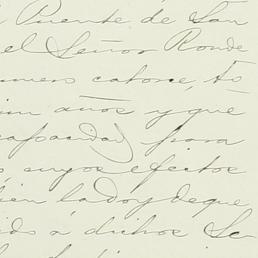 Puente de San
el Señor Ronde
numero catorce,
años y que
capacidad para
suyos efectos
bien la doy de que
á dichos Se